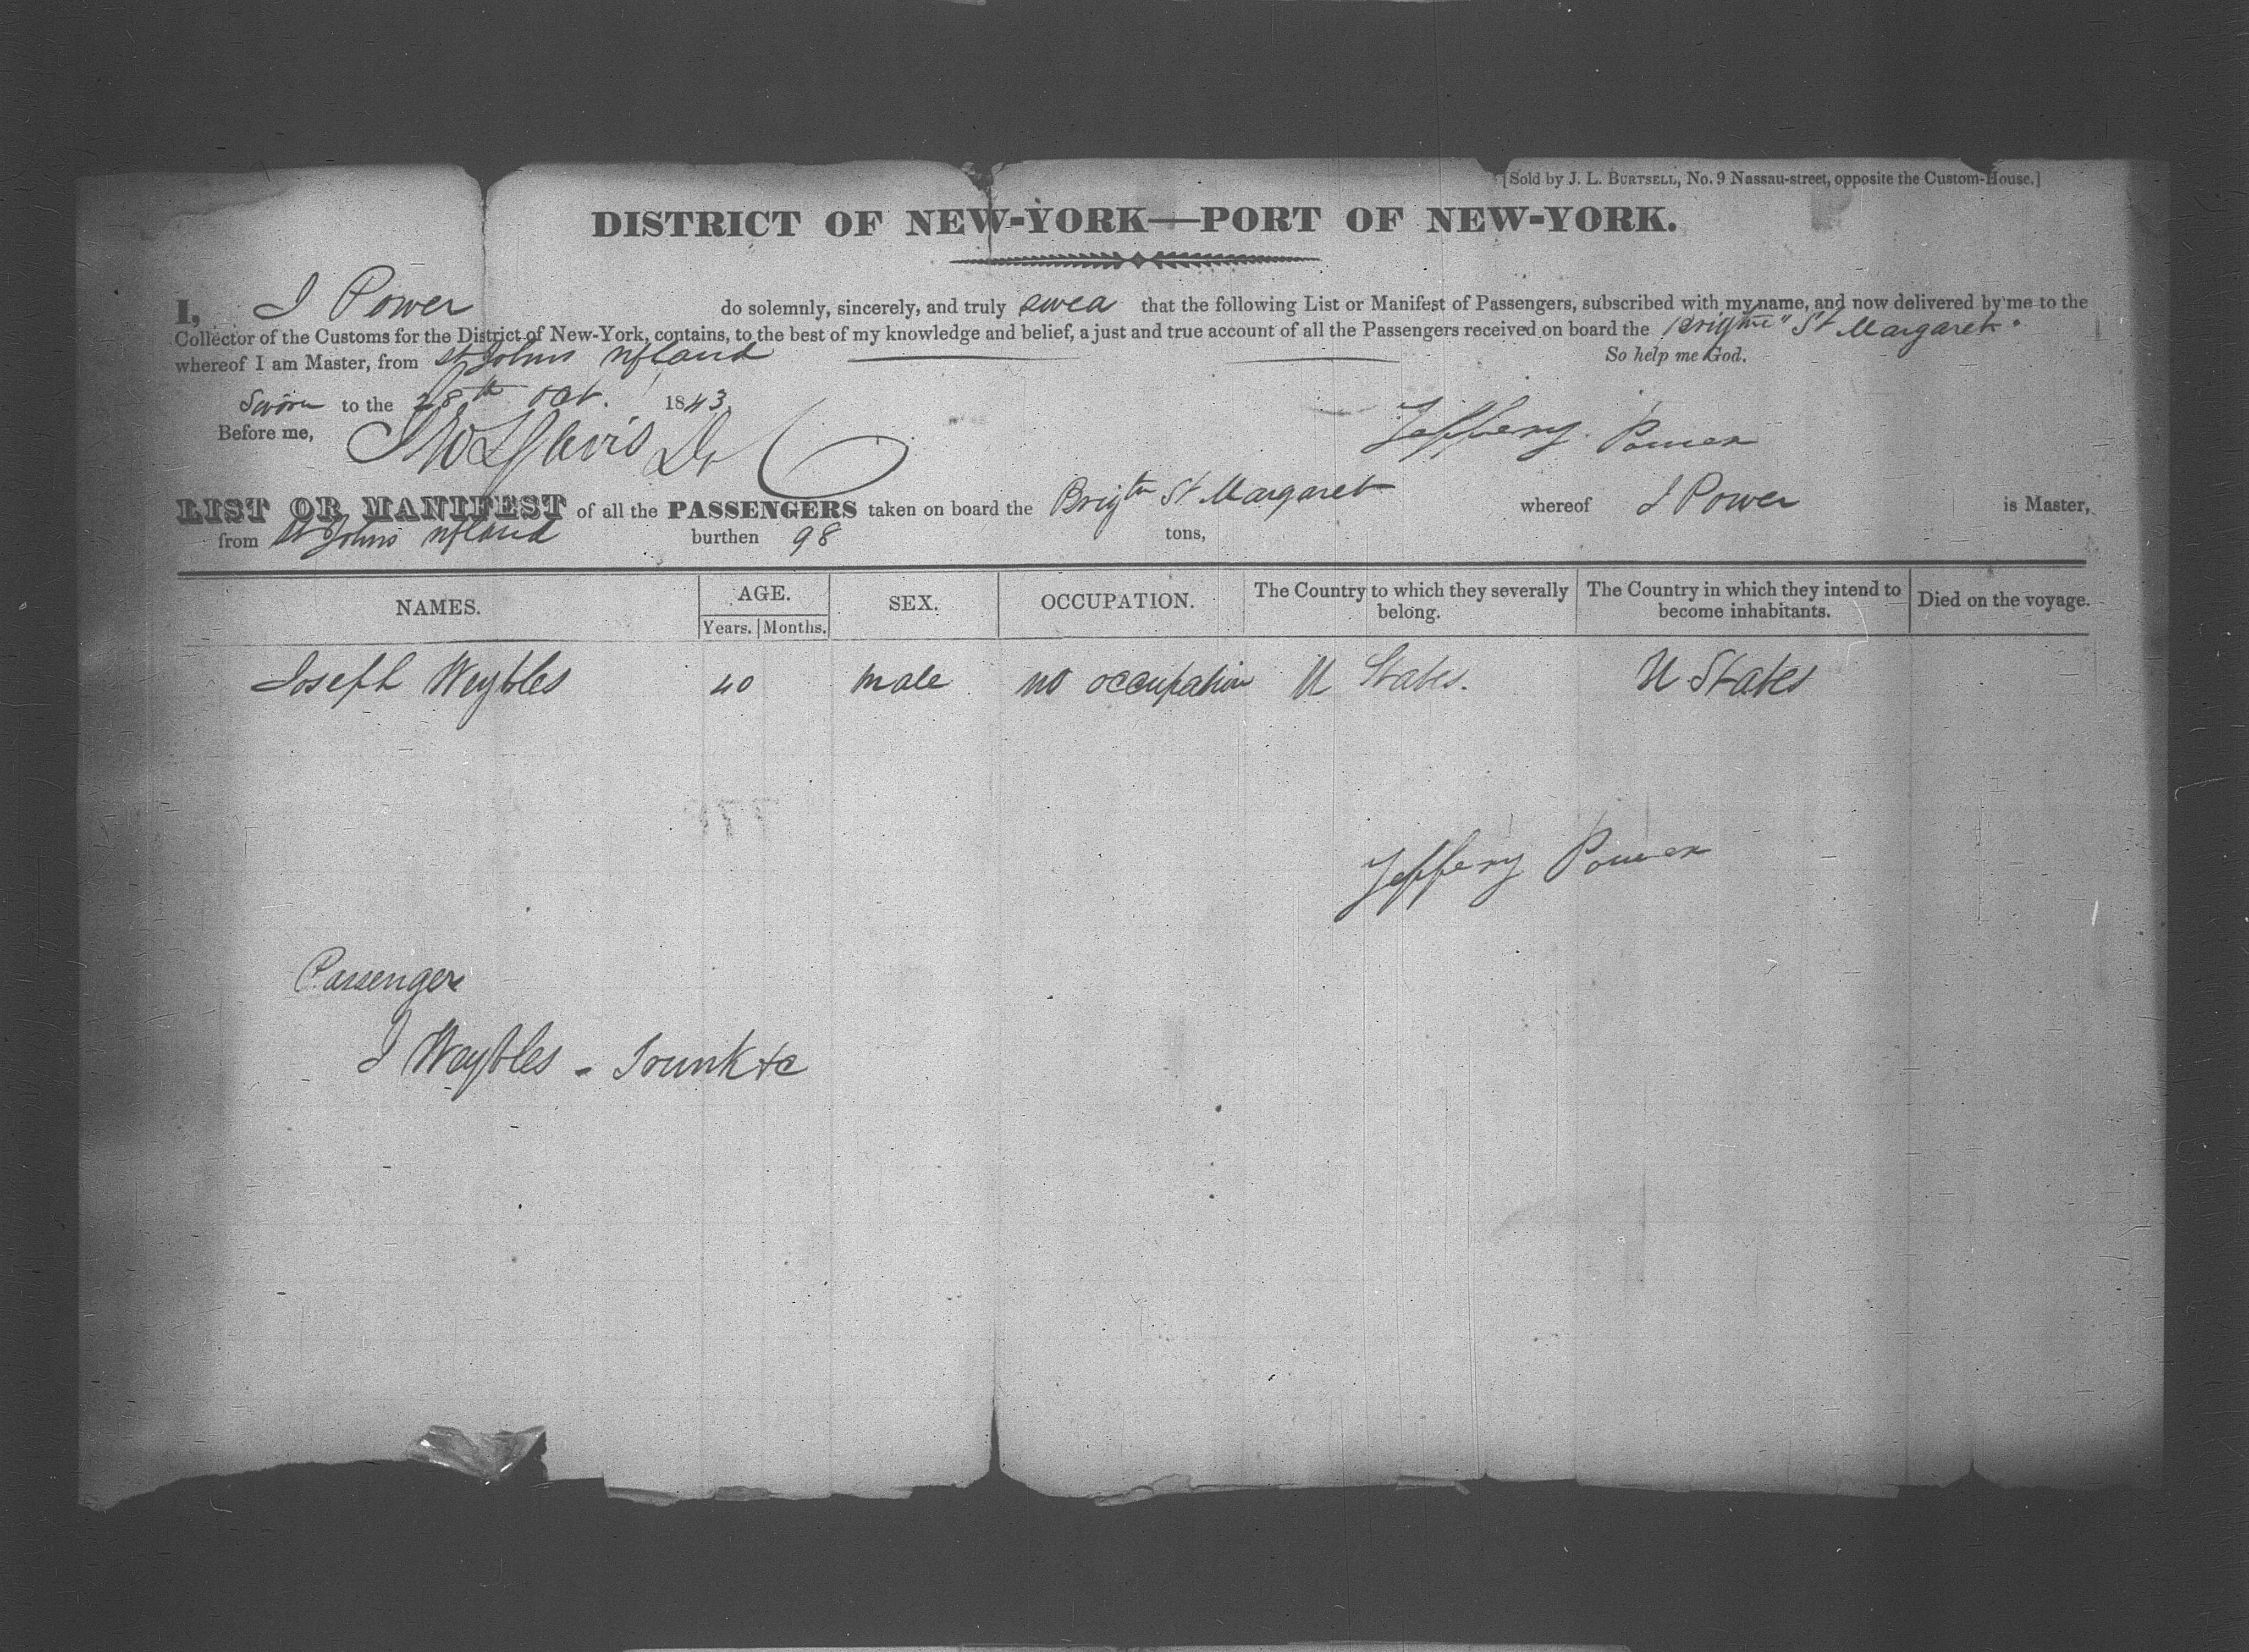 [Sold by J. L. BURTSELL, No. 9 Nassau-street, opposite the Custom-House.]
DISTRICT OF NEW-YORK—PORT OF NEW-YORK.
I, J Power do solemnly, sincerely, and truly swea that the following List or Manifest of Passengers, subscribed with my name, and now delivered by me to the
Collector of the Customs for the District of New-York, contains, to the best of my knowledge and belief, a just and true account of all the Passengers received on board the Brigtne "St Margaret"
whereof I am Master, from St Johns Nfland So help me God.
Sworn to the 28th Oct. 1843
Before me, Jeffery Power
LIST OR MANIFEST of all the PASSENGERS taken on board the Brigtn St Margaret whereof J Power is Master,
from St Johns Nfland burthen 98 tons,
NAMES. AGE. SEX. OCCUPATION. The Country to which they severally belong. The Country in which they intend to become inhabitants. Died on the voyage.
Years. Months.
Joseph Weybles 40 male no occupation U States. U States
Jeffery Power
Passengers
J Weybles - Trunk &c